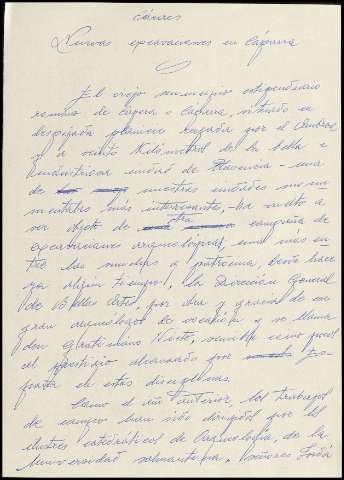 Cáceres
Nuevas excavaciones en Cáparra
El viejo municipio estipendiario
romano de Cápera o Cáparra, situado en
despejada planicie regada por el Ambroz
y a veinte kilómetros de la bella e
industriosa ciudad de Plasencia - una
de nuestras ciudades monu
mentales más interesante, - ha vuelto a
ser objeto de otra campaña de
excavaciones arqueológicas, una más en
tre las muchas que patrocina, desde hace
ya algún tiempo, la Dirección General
de Bellas Artes, por obra y gracia de un
gran arqueólogo de vocación que se llama
don Gratiniano Nieto, nombre como pocos
el prestigio alcanzado por España
en estas disciplinas.
Como el año anterior, los trabajos
de campo han sido dirigidos por los
ilustres catedráticos de Arqueología, de la
Universidad salmantina, señores